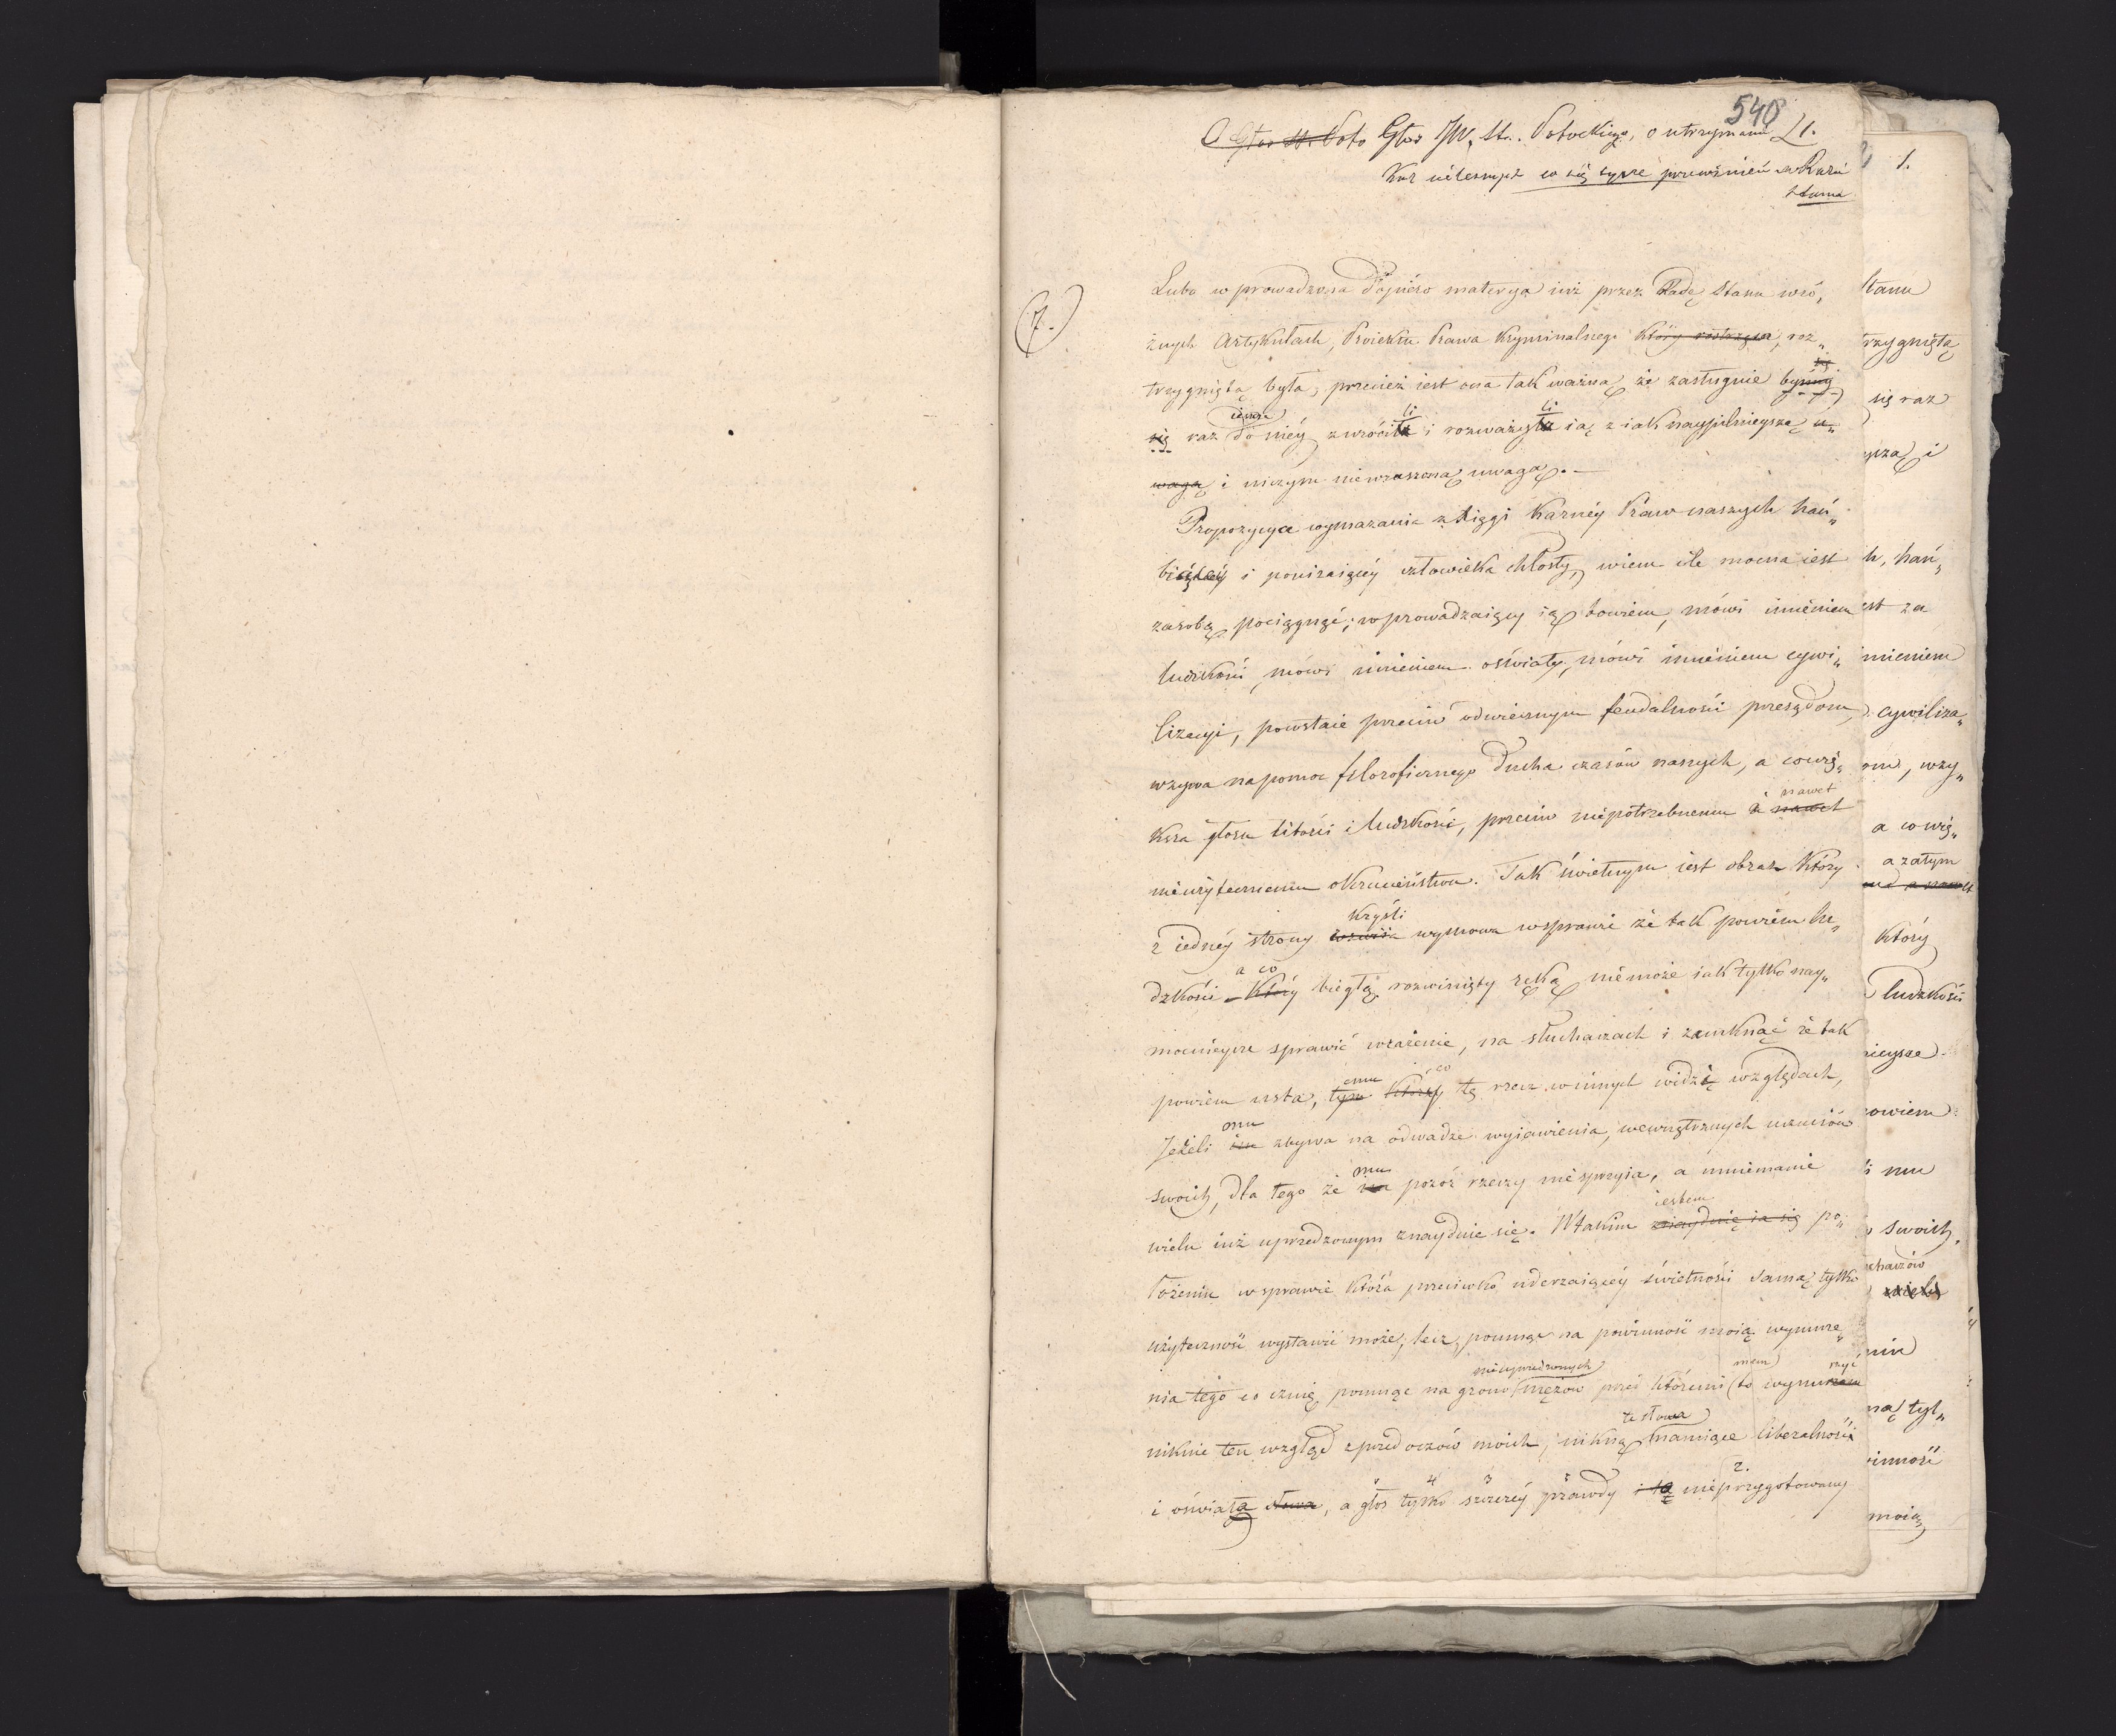 548
O Głos St. Poto Głos JW. St. Potockiego, o utrzymaniu L 1.
Kar cielesnych co się tycze przewinień w Radzie
Stanu
Lubo wprowadzona dopiéro materya iuż przez Radę Stanu wró„
żnych Artykułach, Proiektu Prawa Kryminalnego który roztrząsa, roz„
się
trzygniętą była, przecież iest ona tak ważną że zasługuie byśmy
ieszcze li li
się raz do niéy zwrócili i rozważyli ią z iak naypilnieyszą u„
wagą i niczym niewzruszoną uwagą. —
(7.)
Propozycya wymazania z Xięgi karnéy Praw naszych hań„
biącéy i poniżaiącéy człowieka chłosty, wiem ile mocna iest
zasobą pociągnąć; wprowadzaiący ią bowiem, mówi imieniem
ludzkości, mówi imieniem oświaty, mówi imieniem cywi„
lizacyi, powstaie przeciw odwiecznym feudalności przesądom,
wzywa na pomoc filozoficznego ducha czasów naszych, a cowię„
nawet
ksza głosu litości i ludzkości, przeciw niepotrzebnemu a nawet
nieużytecznemu okrucieństwu. Tak świetnym iest obraz który
kryśli
z iednéy strony wymowa wsprawie że tak powiem lu„
a co
dzkości który biegłą rozwinięty ręką niemoże iak tylko nay„
mocnieysze sprawić wrażenie, na słuchaczach i zamknąć że tak
emu co
powiem usta, tym którzy tę rzecz winnych widzą względach,
mu
Jeżeli im zbywa na odwadze wyiawienia, wewnętrznych uczuciów
mu
swoich, dla tego że im pozór rzeczy niesprzyia, a mniemanie
iestem
wielu iuż uprzedzonym znayduie się. Wtakim znayduię ia się po„
łożeniu wsprawie która przeciwko uderzaiącéy świetności samą tylko
użyteczność wystawić może; lecz, pomnąc na powinność moią wynurze„
nieuprzedzonych mam rzyć
nia tego co czuię, pomnąc na grono mężów przed któremi to wynurzam
te słowa
niknie ten wzgląd zprzed oczów moich, nikną mamiące liberalności
4 3 5 2.
i oświata słowa, a głos tylko szczeréy prawdy i to nieprzygotowany
1.
Stanu
trzygniętą
się raz
yszą i
h, hań„
est za
imieniem
cywiliza„
om, wzy„
a cowię„
a zatym
który
ludzkości
nieysze
owiem
i mu
swoich,
chaczów
wielu
niu
mą tyl„
inność
moią